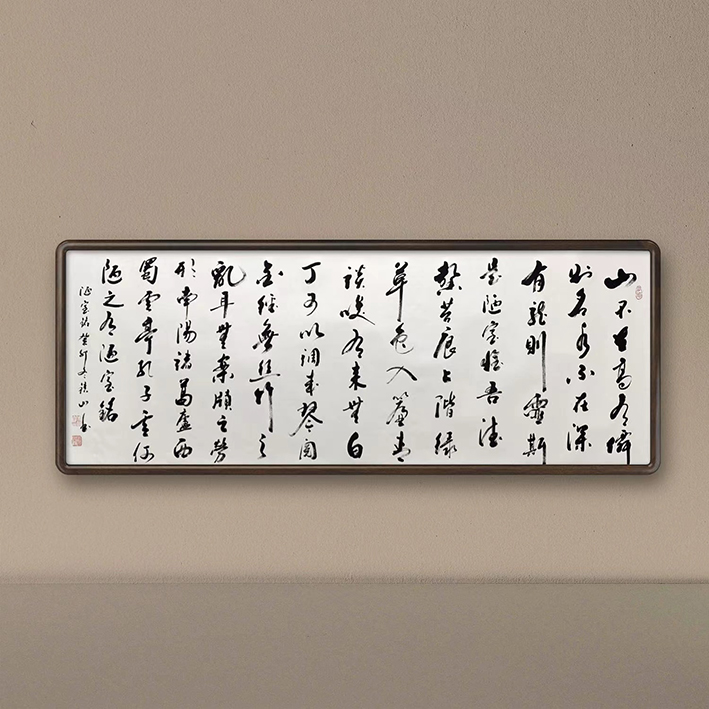 山不在高有僊
則名水不在深
有龍則靈斯
是陋室惟吾德
馨苔痕上階緑
草色入簾青
談咲有来無白
丁可以調素琴閱
金經無絲竹之
亂耳無案牘之勞
形南陽諸葛廬西
蜀雲亭孔子云何
陋之有陋室銘
陋室銘癸卯山書